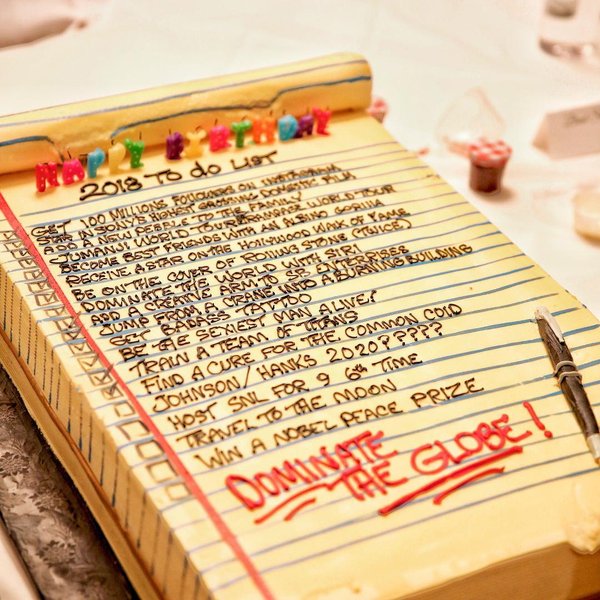 HAPPY BIRTHDAY
2018 TO DO LIST
GET 100 MILLIONS FOLLOWERS ON INSTAGRAM
SONY'S HIGHEST GROSSING DOMESTIC FILM
ADD A NEW TO THE FAMILY
JUMANJI WORLD TOUR WORLD TOUR
BECOME BEST FRIENDS WITH AN ALBINO GORILLA
RECEIVE A STAR ON THE HOLLYWOOD WALK OF FAME
BE ON THE COVER OF ROLLING STONE (TWICE)
DOMINATE THE WORLD WITH SIRI
ADD A CREATIVE ARM TO ENTERPRISES
JUMP FROM A CRANE INTO A BURNING BUILDING
GET BADASS TATTOO
BE THE SEXIEST MAN ALIVE?
TRAIN A TEAM OF TITANS
FIND A CURE FOR THE COMMON COLD
JOHNSON/HANKS 2020????
HOST SNL FOR 9 6th TIME
TRAVEL TO THE MOON
WIN A NOBEL PEACE PRIZE
DOMINATE
THE GLOBE!